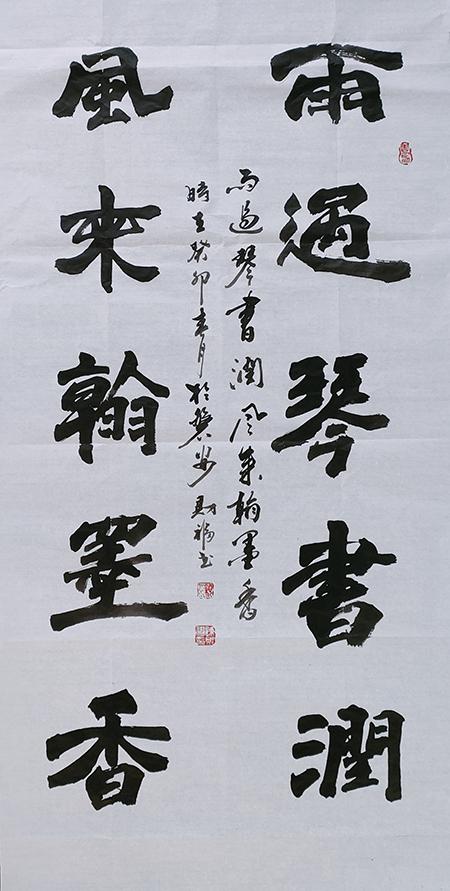 雨過琴書潤
雨過琴書潤風來翰墨香
時在癸卯春月於財福書
風來翰墨香